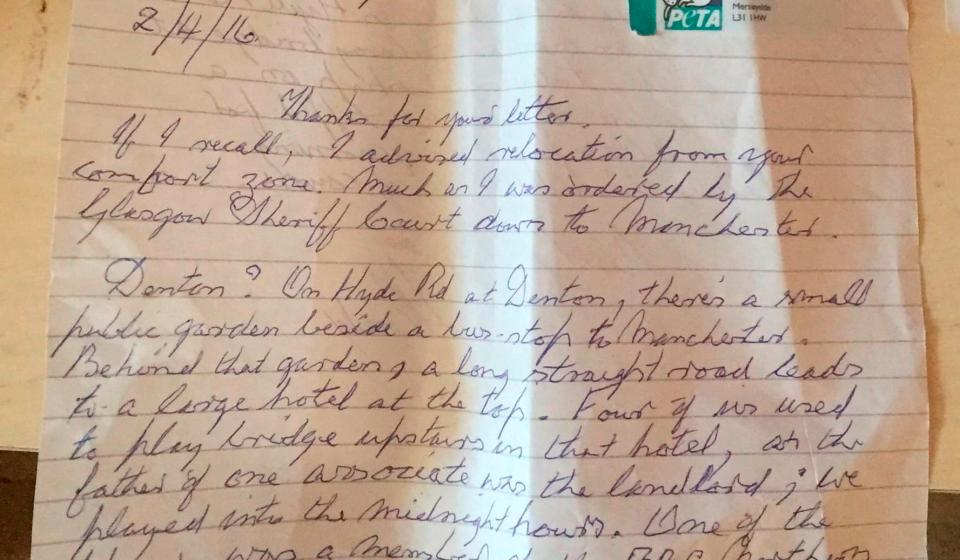 Merseyside
L31 1HW
PeTA
2/4/16.
Thanks for your letter.
If I recall, I advised relocation from your
comfort zone. Much as I was ordered by the
Glasgow Sheriff Court down to Manchester.
Denton? On Hyde Rd at Denton, there's a small
public garden beside a bus-stop to Manchester.
Behind that garden, a long straight road leads
to a large hotel at the top. Four of us used
to play bridge upstairs in that hotel, as the
father of one associate was the landlord; we
played into the midnight hours. One of the
was a member